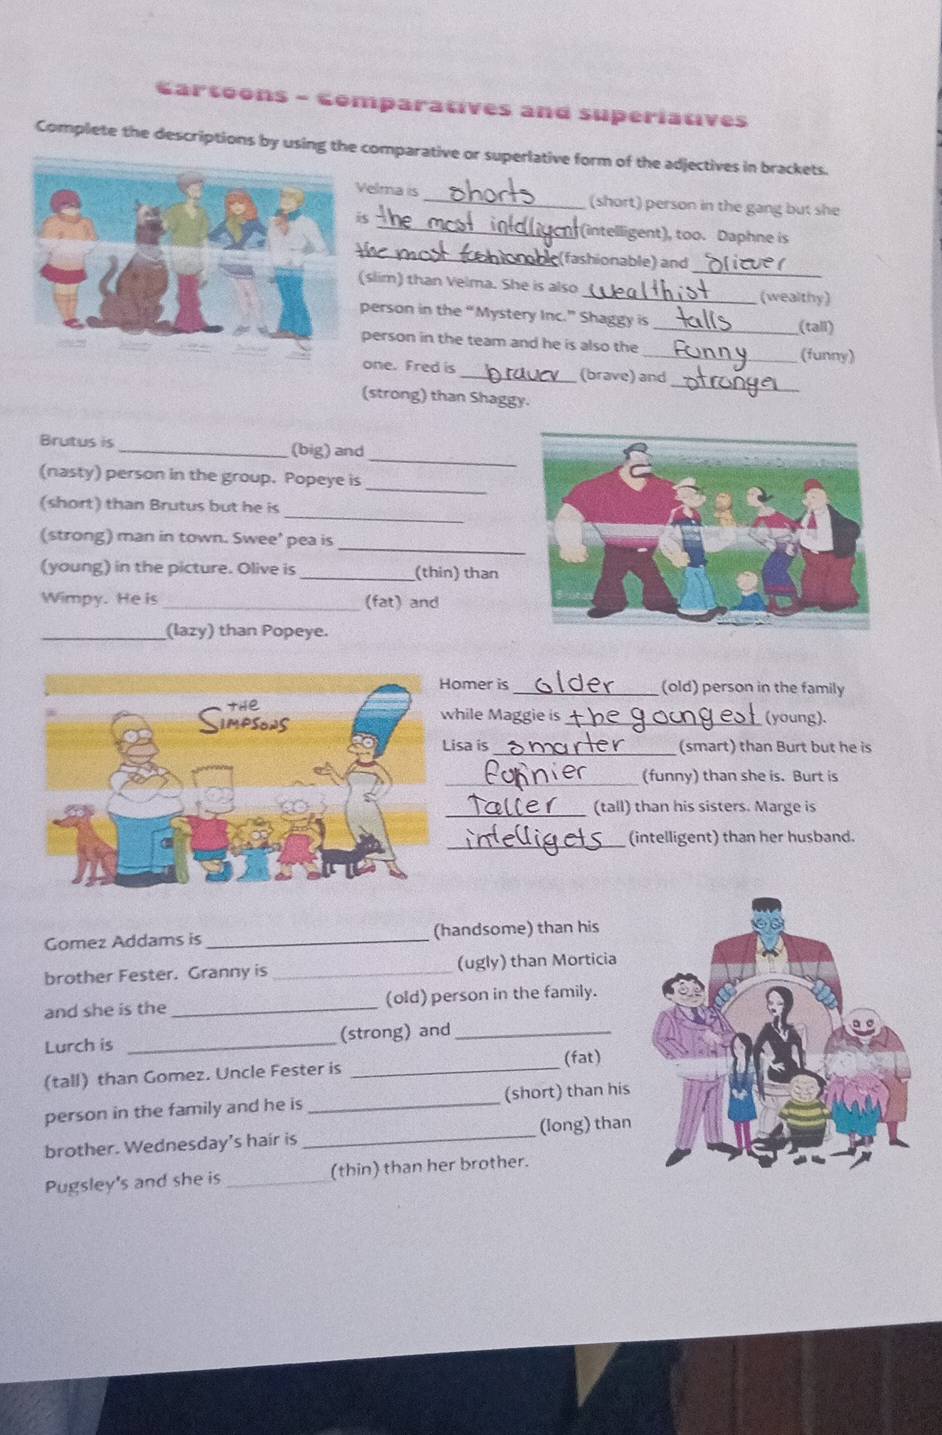 Cartoons - Comparatives and superlatives
Complete the descriptions by using the comparative or superlative form of the adjectives in brackets.
Velma is shorts (short) person in the gang but she
is the most intelligent (intelligent), too. Daphne is
the most fashionable (fashionable) and sliever
(slim) than Velma. She is also wealthist (wealthy)
person in the "Mystery Inc." Shaggy is talls (tall)
person in the team and he is also the Funny (funny)
one. Fred is braver (brave) and stronger
(strong) than Shaggy.
Brutus is ____ (big) and ____
(nasty) person in the group. Popeye is ____
(short) than Brutus but he is ____
(strong) man in town. Swee' pea is ____
(young) in the picture. Olive is ____ (thin) than
Wimpy. He is ____ (fat) and
____ (lazy) than Popeye.
Brutus
THE
SIMPSONS
Homer is older (old) person in the family
while Maggie is the goungest (young).
Lisa is smarter (smart) than Burt but he is
fonnier (funny) than she is. Burt is
Taller (tall) than his sisters. Marge is
intelligets (intelligent) than her husband.
Gomez Addams is ____ (handsome) than his
brother Fester. Granny is ____ (ugly) than Morticia
and she is the ____ (old) person in the family.
Lurch is ____ (strong) and ____
(tall) than Gomez. Uncle Fester is ____ (fat)
person in the family and he is ____ (short) than his
brother. Wednesday's hair is ____ (long) than
Pugsley's and she is ____ (thin) than her brother.